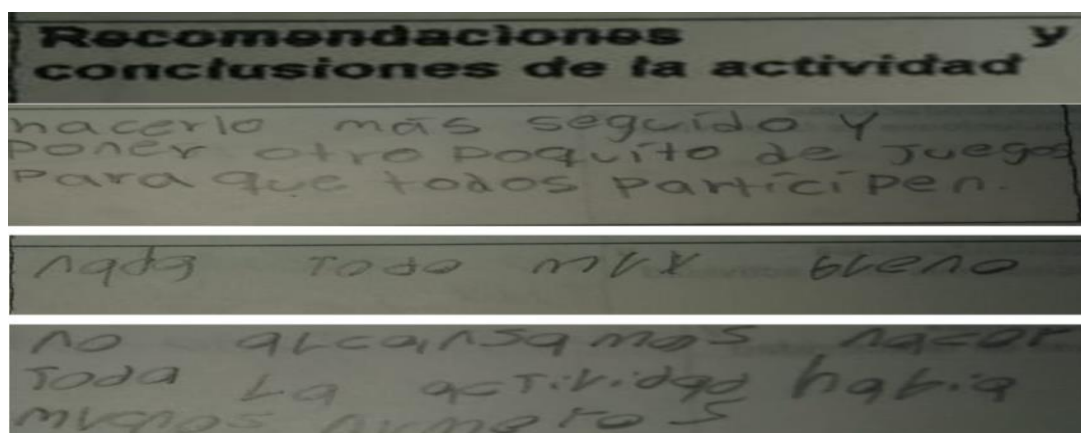 Recomendaciones y
conclusiones de la actividad
hacerlo más seguido y
poner otro poquito de Juegos
para que todos participen.
nada Todo muy bueno
no alcansamos hacer
Toda La actividad habia
muchos numeros